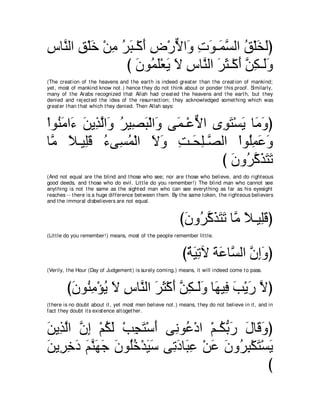 (لَخَلْقُ السَّمَـوَتِ وَالاٌّرْضِ أَكْـبَرُ مِنْ خَلْقِ النَّاسِ
وَلَـكِنَّ أَكْـثَرَ النَّاسِ لاَ يَعْلَمُونَ )
(The creation of the heavens and the earth is indeed greater than the creation of mankind; yet, most of mankind know not.) hence they do not think about or ponder this proof. Similarly, many of the Arabs recognized that Allah had created the heavens and the earth, but they denied and rejected the idea of the resurrection; they acknowledged something which was greater than that which they denied. Then Allah says:
(وَمَا يَسْتَوِى الاٌّعْـمَى وَالْبَصِيرُ وَالَّذِينَ ءَامَنُواْ
وَعَمِلُواْ الصَّـلِـحَـتِ وَلاَ الْمُسِىءُ قَلِيـلاً مَّا
تَتَذَكَّرُونَ )
(And not equal are the blind and those who see; nor are those who believe, and do righteous good deeds, and those who do evil. Little do you remember!) The blind man who cannot see anything is not the same as the sighted man who can see everything as far as his eyesight reaches -- there is a huge difference between them. By the same token, the righteous believers and the immoral disbelievers are not equal.
(قَلِيـلاً مَّا تَتَذَكَّرُونَ)
(Little do you remember!) means, most of the people remember little.
(وَإِنَّ السَّاعَةَ لأَتِيَةٌ)
(Verily, the Hour (Day of Judgement) is surely coming,) means, it will indeed come to pass.
(لاَّ رَيْبَ فِيهَا وَلَـكِنَّ أَكْثَرَ النَّاسِ لاَ يُؤْمِنُونَ)
(there is no doubt about it, yet most men believe not.) means, they do not believe in it, and in fact they doubt its existence altogether.
(وَقَالَ رَبُّكُـمْ ادْعُونِى أَسْتَجِبْ لَكُمْ إِنَّ الَّذِينَ
يَسْتَكْبِرُونَ عَنْ عِبَادَتِى سَيَدْخُلُونَ جَهَنَّمَ دَخِرِينَ
)